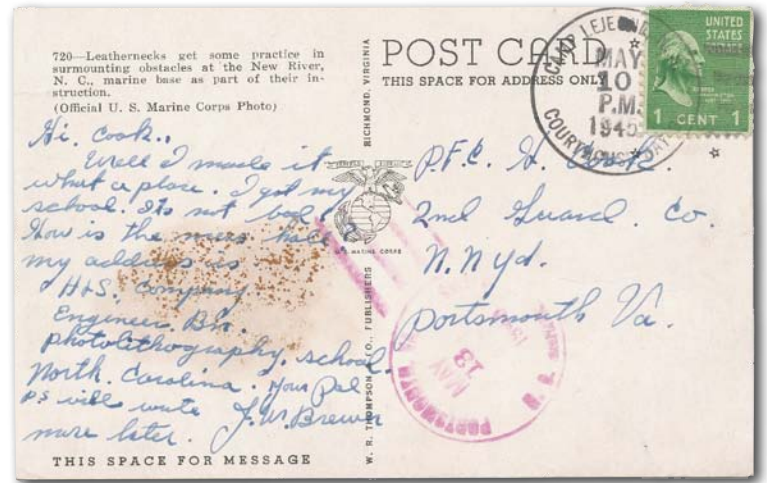 720—Leathernecks get some practice in
surmounting obstacles at the New River,
N. C., marine base as part of their in-
struction.
(Official U. S. Marine Corps Photo)
Hi. Cook.,
Well I made it
what a place. I got my
school. Its not bad.
How is the mess hall?
my address is
H&S. Company.
Engineer. Bn.
photolithography. school.
North. Carolina. Your Pal
P.S will write J.W. Brewer
more later.
THIS SPACE FOR MESSAGE
RICHMOND, VIRGINIA
U.S. MARINE CORPS
W. R. THOMPSON & CO., PUBLISHERS
POST CARD
THIS SPACE FOR ADDRESS ONLY
CAMP LEJEUNE
MAY
10
P.M.
1945
UNITED
STATES
POSTAGE
1 CENT 1
P.F.C. H.
2nd Guard. Co.
N.N Yd.
Portsmouth Va.
PORTSMOUTH
MAY
13